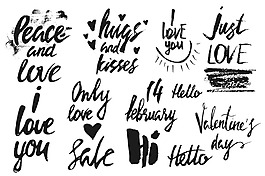 Peace
and
love
hugs
and
kisses
I
love
you
just
LOVE
i
love
you
Only
love
Sale
14
february
Hi
Hello
Hello
Valentine's
day